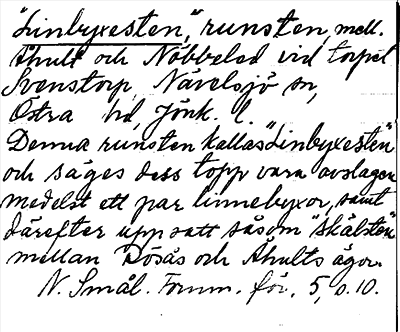 "Linbyxesten," runsten mell.
Åhult och Nöbbeled vid torpet
Svenstorp, Nävelsjö sn,
Östra hd, Jönk. l.
Denna runsten kallas "Linbyxesten"
och säges dess topp vara avslagen
medelst ett par linnebyxor, samt
därefter uppsatt såsom "skälsten"
mellan Rösås och Åhults ägor.
N. Smål. Fornm.för. 5, s. 10.